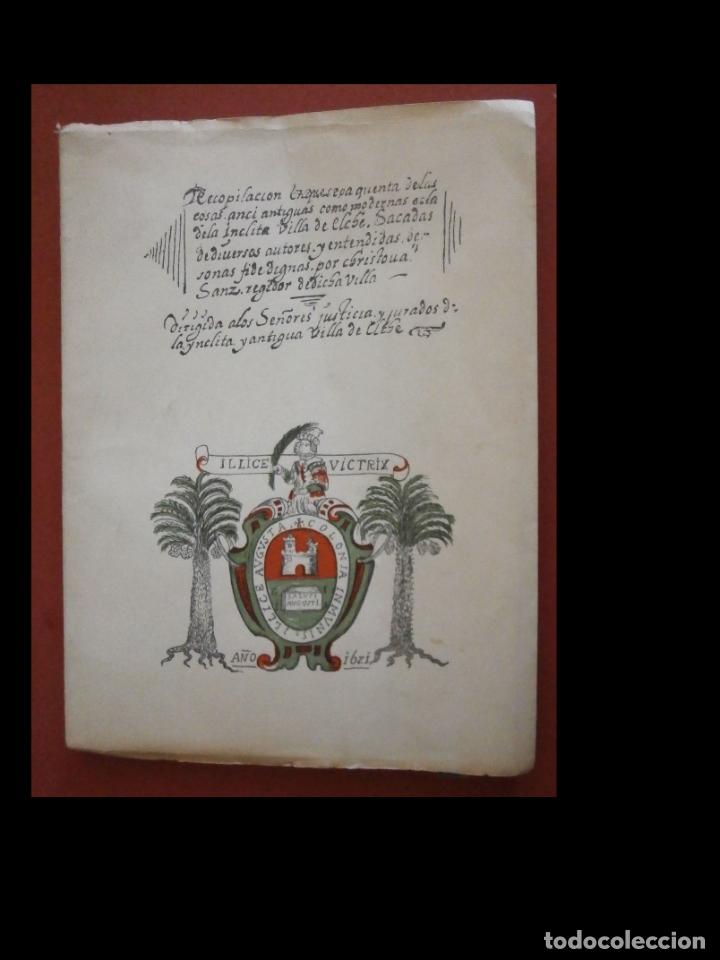 Recopilacion en que se da quenta de las
cosas anci antiguas como modernas de la
dela inclita Villa de Elche, Sacadas
de diversos autores, y entendidas, de
sonas fide dignas, por christoval
Sanz, regidor de dicha Villa
Dirigida alos Señores justicia, y jurados de
la ynclita y antigua Villa de Elche
ILLICE VICTRIX
ILLICE AUGUSTA COLONIA INMUNIS
SALUTI
AUGUSTI
AÑO 1621
todocoleccion.net